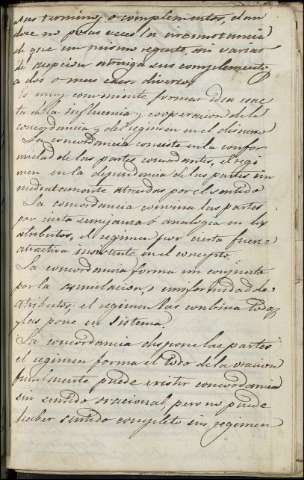 sus terminos o complementos, dan
dose no pocas veces la circunstancia
de que un mismo regente, sin variar
de especie atraiga sus complementos
a dos o mas casos diversos
Es muy conveniente formar idea exac
ta de la influencia y cooperacion de la
concordancia y del regimen en el discurso
La concordancia consiste en la confor
midad de las partes concordantes, el regi
men en la dependencia de las partes in
mediatamente atraidas por el sentido
La concordancia convina las partes
por cierta semejanza o analogia en los
atributos, el regimen por cierta fuerza
atractiva insistente en el concepto
La concordancia forma un conjunto
por la asimilacion, o conformidad de
atributos; el regimen las combina todas
y las pone en sistema
La concordancia dispone las partes
el regimen forma el todo de la oracion
finalmente puede existir concordancia
sin sentido oracional, pero no puede
haber sentido completo sin regimen